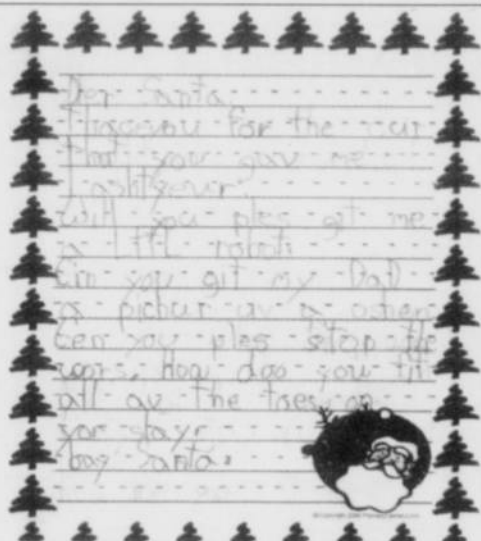 Der Santa
Thaceyou for the
that you gav me
Lasht yeur.
Will you ples git me
a littl robot.
Cin you git my Dad
a pichur uv a oshen
Cen you ples stop the
wors. How doo you fit
all av the toes on
yor slay?
bay Santa.